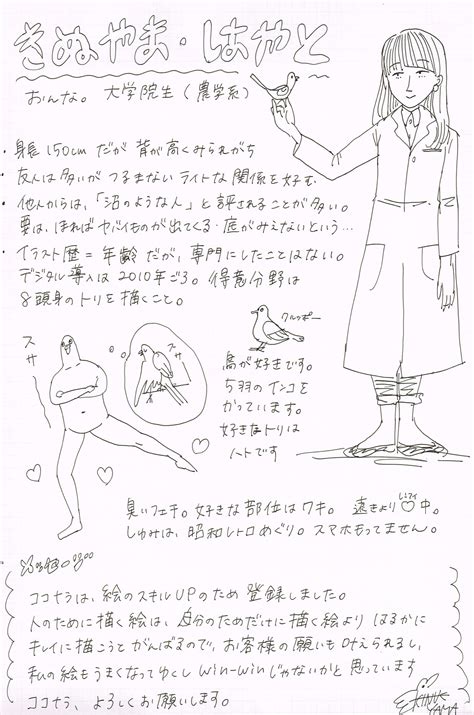 きぬやま・はやと
おんな。 大学院生（農学系）
・身長150cmだが背が高くみられがち
友人は多いがつるまないライトな関係を好む。
・他人からは、「沼のような人」と評されることが多い。
要は、ほればヤバイものが出てくる・底がみえないという…
イラスト歴＝年齢だが、専門にしたことはない。
デジタル導入は2010年ごろ。得意分野は
8頭身のトリを描くこと。
クルッポー
スサ
スサ
鳥が好きです。
5羽のインコを
かっています。
好きなトリは
ハトです
臭いフェチ。好きな部位はワキ。 遠きょり♡中。
しゅみは、昭和レトロめぐり。スマホもってません。
ココナラは、絵のスキルUPのため登録しました。
人のために描く絵は、自分のためだけに描く絵よりはるかに
キレイに描こうとがんばるので、お客様の願いも叶えられるし、
私の絵もうまくなってゆくしwin-winじゃないかと思っています
ココナラ、よろしくお願いします。